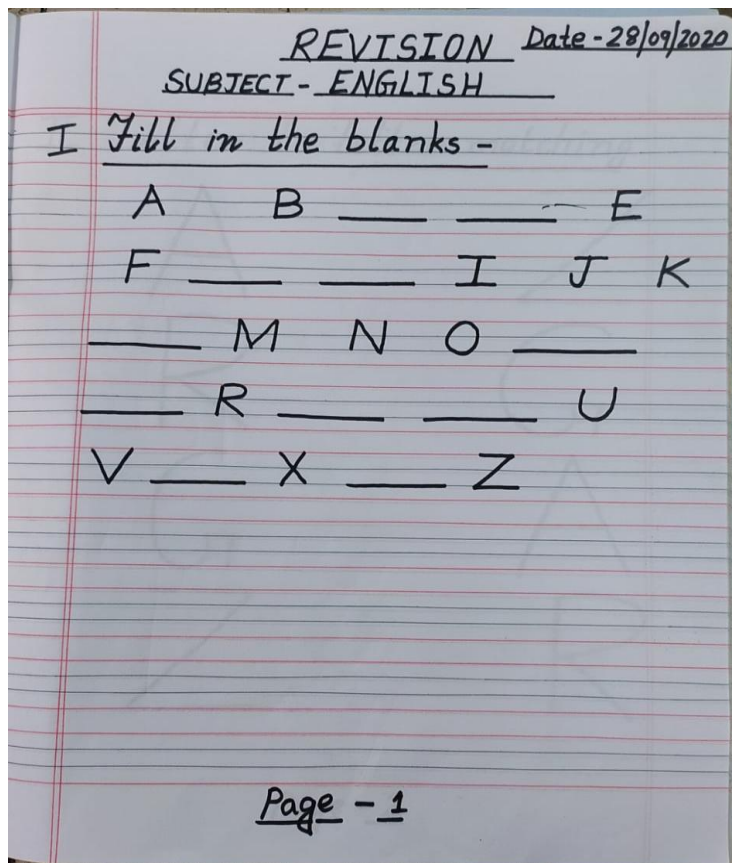 REVISION Date - 28/09/2020
SUBJECT - ENGLISH
I Fill in the blanks -
A B ___ ___ E
F ___ ___ I J K
___ M N O ___
___ R ___ ___ U
V ___ X ___ Z
Page - 1